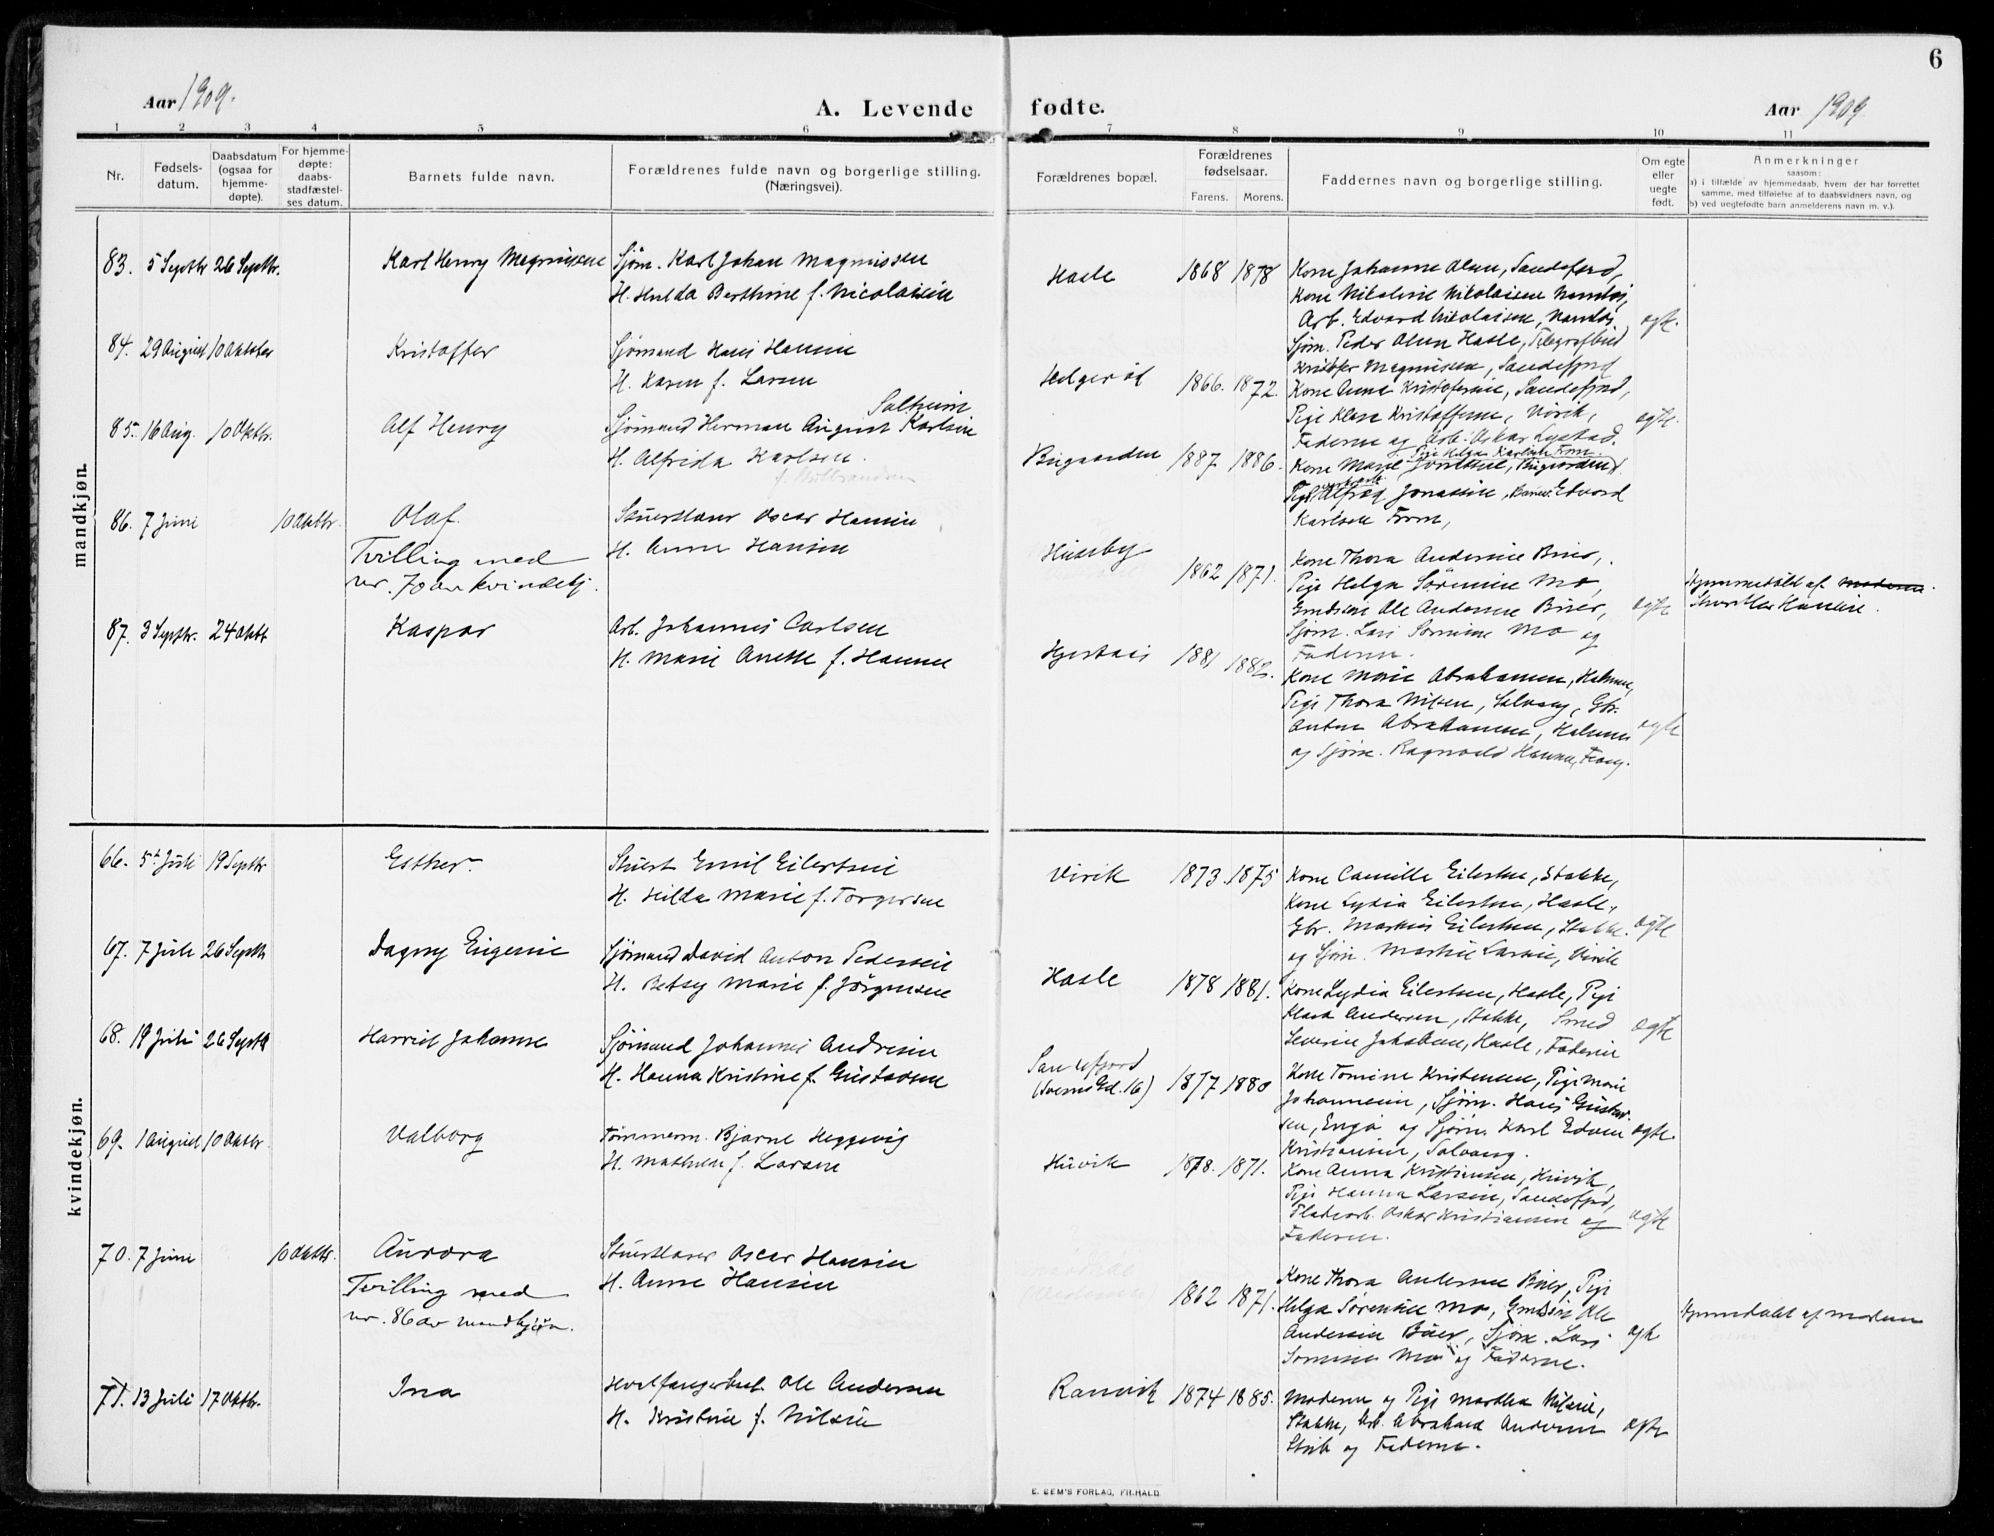 6
Aar 1909.
A. Levende fødte.
Aar 1909
1 2 3 4 5 6 7 8 9 10 11
Nr.
Fødsels-
datum.
Daabsdatum
(ogsaa for
hjemme-
døpte).
For hjemme-
døpte:
daabs-
stadfæstel-
ses datum.
Barnets fulde navn.
Forældrenes fulde navn og borgerlige stilling.
(Næringsvei).
Forældrenes bopæl.
Forældrenes
fødselsaar.
Farens. Morens.
Faddernes navn og borgerlige stilling.
Om egte
eller
uegte
født.
Anmerkninger
saasom:
a) i tilfælde av hjemmedaab, hvem der har forrettet
samme, med tilføielse af to daabsvidners navn, og
b) ved uegtefødte barn anmelderens navn m. v.).
mandkjøn.
83. 5 Septbr 26 Septbr. Karl Henry Magnussen Sjøm. Karl Johan Magnussen
H. Hulda Berthine f. Nicolaisen
Hasle 1868 1878 Kone Johanne Olsen, Sandefjord,
Kone Nikoline Nikolaisen
Arb. Edvard Nikolaisen,
Sjøm. Peder Olsen Hasle, Telegrafbud
Magnussen, Sandefjord
egte.
84. 29 August 10 Oktober Kristoffer Sjømand Hans Hansen
H. Karen f. Larsen
Helgerød 1866. 1872. Kone Anna Kristofersen, Sandefjord,
Pige Klara Kristoffersen, Virik,
Faderen og Arb. Oskar Lystad.
egte.
85. 16 Aug. 10 Oktbr. Alf Henry Solheim
Sjømand Herman August Karlsen
H. Alfrida Karlsen.
Bugaarden 1887. 1886. Pige Helga Karlsen Fevn.
Kone Marie Bugaarden
Alfred Jonassen, Edvard
Karlsen
86. 7 Juni 10 Oktbr. Olaf.
Tvilling med
nr. 70 av kvindekj.
Stuerthaver Oscar Hansen
H. Anne Hansen
Huseby 1862 1871. Kone Thora Andersen Buer,
Pige Helga Sørensen Mo,
Ole Andersen Buer,
Sjøm. Lars Sørensen Mo og
Faderen.
egte Hjemmedøbt af moderen.
Hansen.
87. 3 Septbr. 24 Oktb Kaspar Arb. Johannes Carlsen
H. Marie Anette f. Hansen
Hjertaas 1881 1882. Kone Marie Abrahamsen,
Pige Thora Nilsen, Solvang, Gbr.
Anton Abrahamsen,
og Sjøm. Ragnvald Hansen,
egte
kvindekjøn.
66. 5 Juli 19 Septbr Esther. Stuert Emil Eilertsen
H. Hilda Marie f. Torgersen
Virik 1873. 1875 Kone Camilla Eilertsen, Stakke,
Kone Lydia Eilertsen, Hasle,
Gbr. Markus Eilertsen, Stakke.
og Sjøm. Martin Larsen, Virik
egte
67. 7 Juli 26 Septbr Dagny Eugenie Sjømand David Anton Pedersen
H. Betsy Marie f. Jørgensen
Hasle 1878 1881. Kone Lydia Eilertsen, Hasle, Pige
Klara Andersen, Stakke, Smed
Severin Jakobsen, Hasle, Faderen
egte
68. 19 Juli 26 Septb Harriet Johanne Sjømand Johannes Andresen
H. Hanna Kristine f. Gustavsen
Sandefjord
16) 1877 1880 Kone Tomine Kristensen, Pige Marie
Johannesen, Sjøm. Hans Gustav-
sen, Engø og Sjøm. Karl Edvin
Kristiansen, Solvang.
egte.
69. 1 August 10 Oktbr. Valborg Tømmerm. Bjarne Heggevig
H. Mathilde f. Larsen
Huvik 1878. 1871. Kone Anna Kristiansen, Huvik,
Pige Hanna Larsen, Sandefjord,
Oskar Kristiansen og
Faderen.
egte
70. 7 Juni 10 Oktbr. Aurora
Tvilling med
nr. 86 av mandkjøn.
Stuerthaver Oscar Hansen
H. Anne Hansen
1862 1871. Kone Thora Andersen Buer, Pige
Helga Sørensen Mo, Ole
Andersen Buer, Sjøm. Lars
Sørensen Mo og Faderen.
egte Hjemmedøbt af moderen
71. 13 Juli 17 Oktbr. Ina Hvalfangerbest. Ole Andersen
H. Kristine f. Nilsen
Ranvik 1874 1885. Moderen og Pige Marthea Nilsen,
Stakke, Arb. Abraham Andersen
Stub og Faderen.
egte
E. SEM'S FORLAG, FR.HALD.